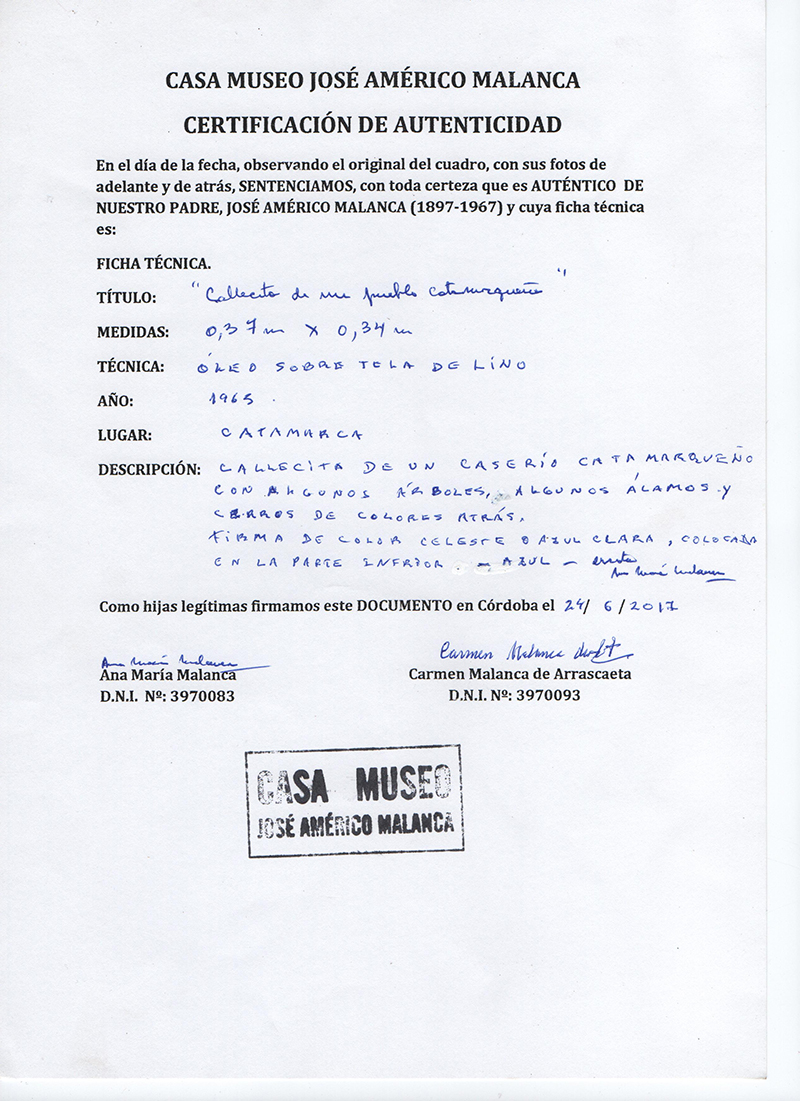 CASA MUSEO JOSÉ AMÉRICO MALANCA
CERTIFICACIÓN DE AUTENTICIDAD
En el día de la fecha, observando el original del cuadro, con sus fotos de
adelante y de atrás, SENTENCIAMOS, con toda certeza que es AUTÉNTICO DE
NUESTRO PADRE, JOSÉ AMÉRICO MALANCA (1897-1967) y cuya ficha técnica
es:
FICHA TÉCNICA.
TÍTULO: "Callecita de un pueblo catamarqueño"
MEDIDAS: 0,37 m X 0,34 m
TÉCNICA: ÓLEO SOBRE TELA DE LINO
AÑO: 1965.
LUGAR: CATAMARCA
DESCRIPCIÓN: CALLECITA DE UN CASERÍO CATAMARQUEÑO
CON ALGUNOS ÁRBOLES, ALGUNOS ÁLAMOS Y
CERROS DE COLORES ATRÁS.
FIRMA DE COLOR CELESTE O AZUL CLARA, COLOCADA
EN LA PARTE INFRIOR. - AZUL -
Ana María Malanca
Como hijas legítimas firmamos este DOCUMENTO en Córdoba el 24/ 6 / 2017
Ana María Malanca
Carmen Malanca
Ana María Malanca
D.N.I. Nº: 3970083
Carmen Malanca de Arrascaeta
D.N.I. Nº: 3970093
CASA MUSEO
JOSÉ AMÉRICO MALANCA